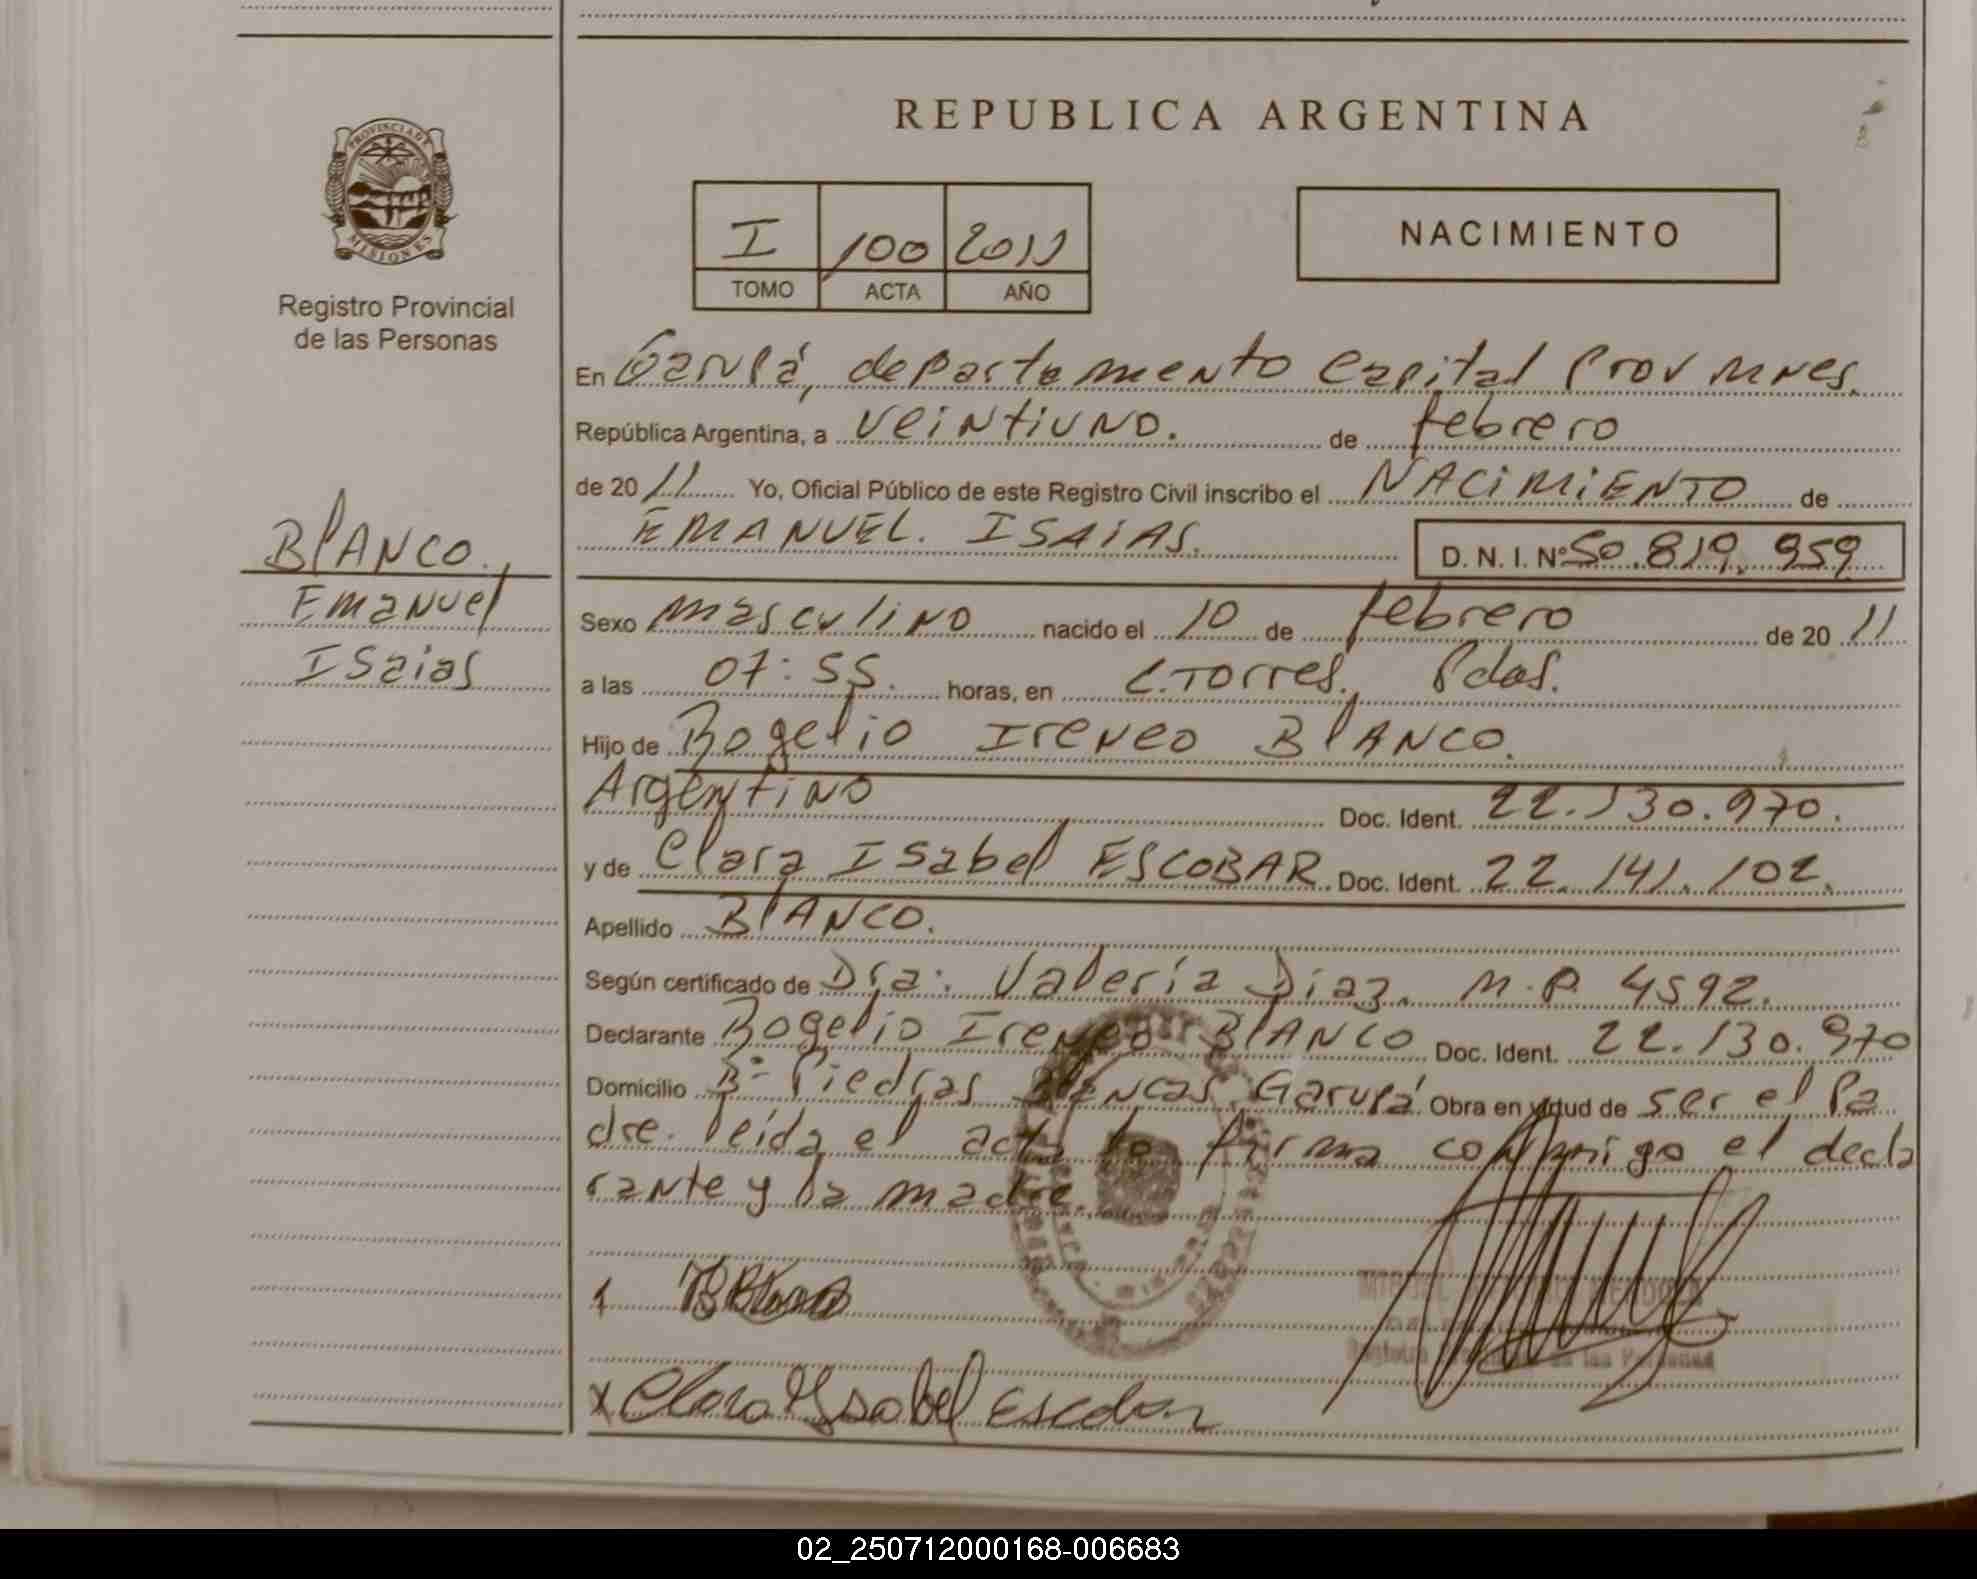 PROVINCIA DE
MISIONES
Registro Provincial
de las Personas
BlANCO.
Emanuel
Isaias
REPUBLICA ARGENTINA
I 100 2011
TOMO ACTA AÑO
NACIMIENTO
En Garupá, departamento Capital Prov Mnes.
República Argentina, a veintiuno. de febrero
de 20 11 Yo, Oficial Público de este Registro Civil inscribo el NACIMIENTO de
EMANUEL. ISAIAS. D. N. I. Nº 50.819.959
Sexo masculino nacido el 10 de febrero de 20 11
a las 07:55. horas, en C.Torres., Pdas.
Hijo de Rogelio Ireneo BlANCO.
Argentino Doc. Ident. 22.130.970.
y de Clara Isabel ESCOBAR. Doc. Ident. 22.141.102.
Apellido BlANCO.
Según certificado de Dra: Valeria Diaz. M.P. 4592.
Declarante Rogelio Ireneo BlANCO Doc. Ident. 22.130.970
Domicilio Bº Piedras Blancas, Garupá Obra en virtud de ser el Pa
dre. leída el acta la firma conmigo el decla
rante y la madre.
Registro de las Personas
x Clara Ysabel Escobar
02_250712000168-006683